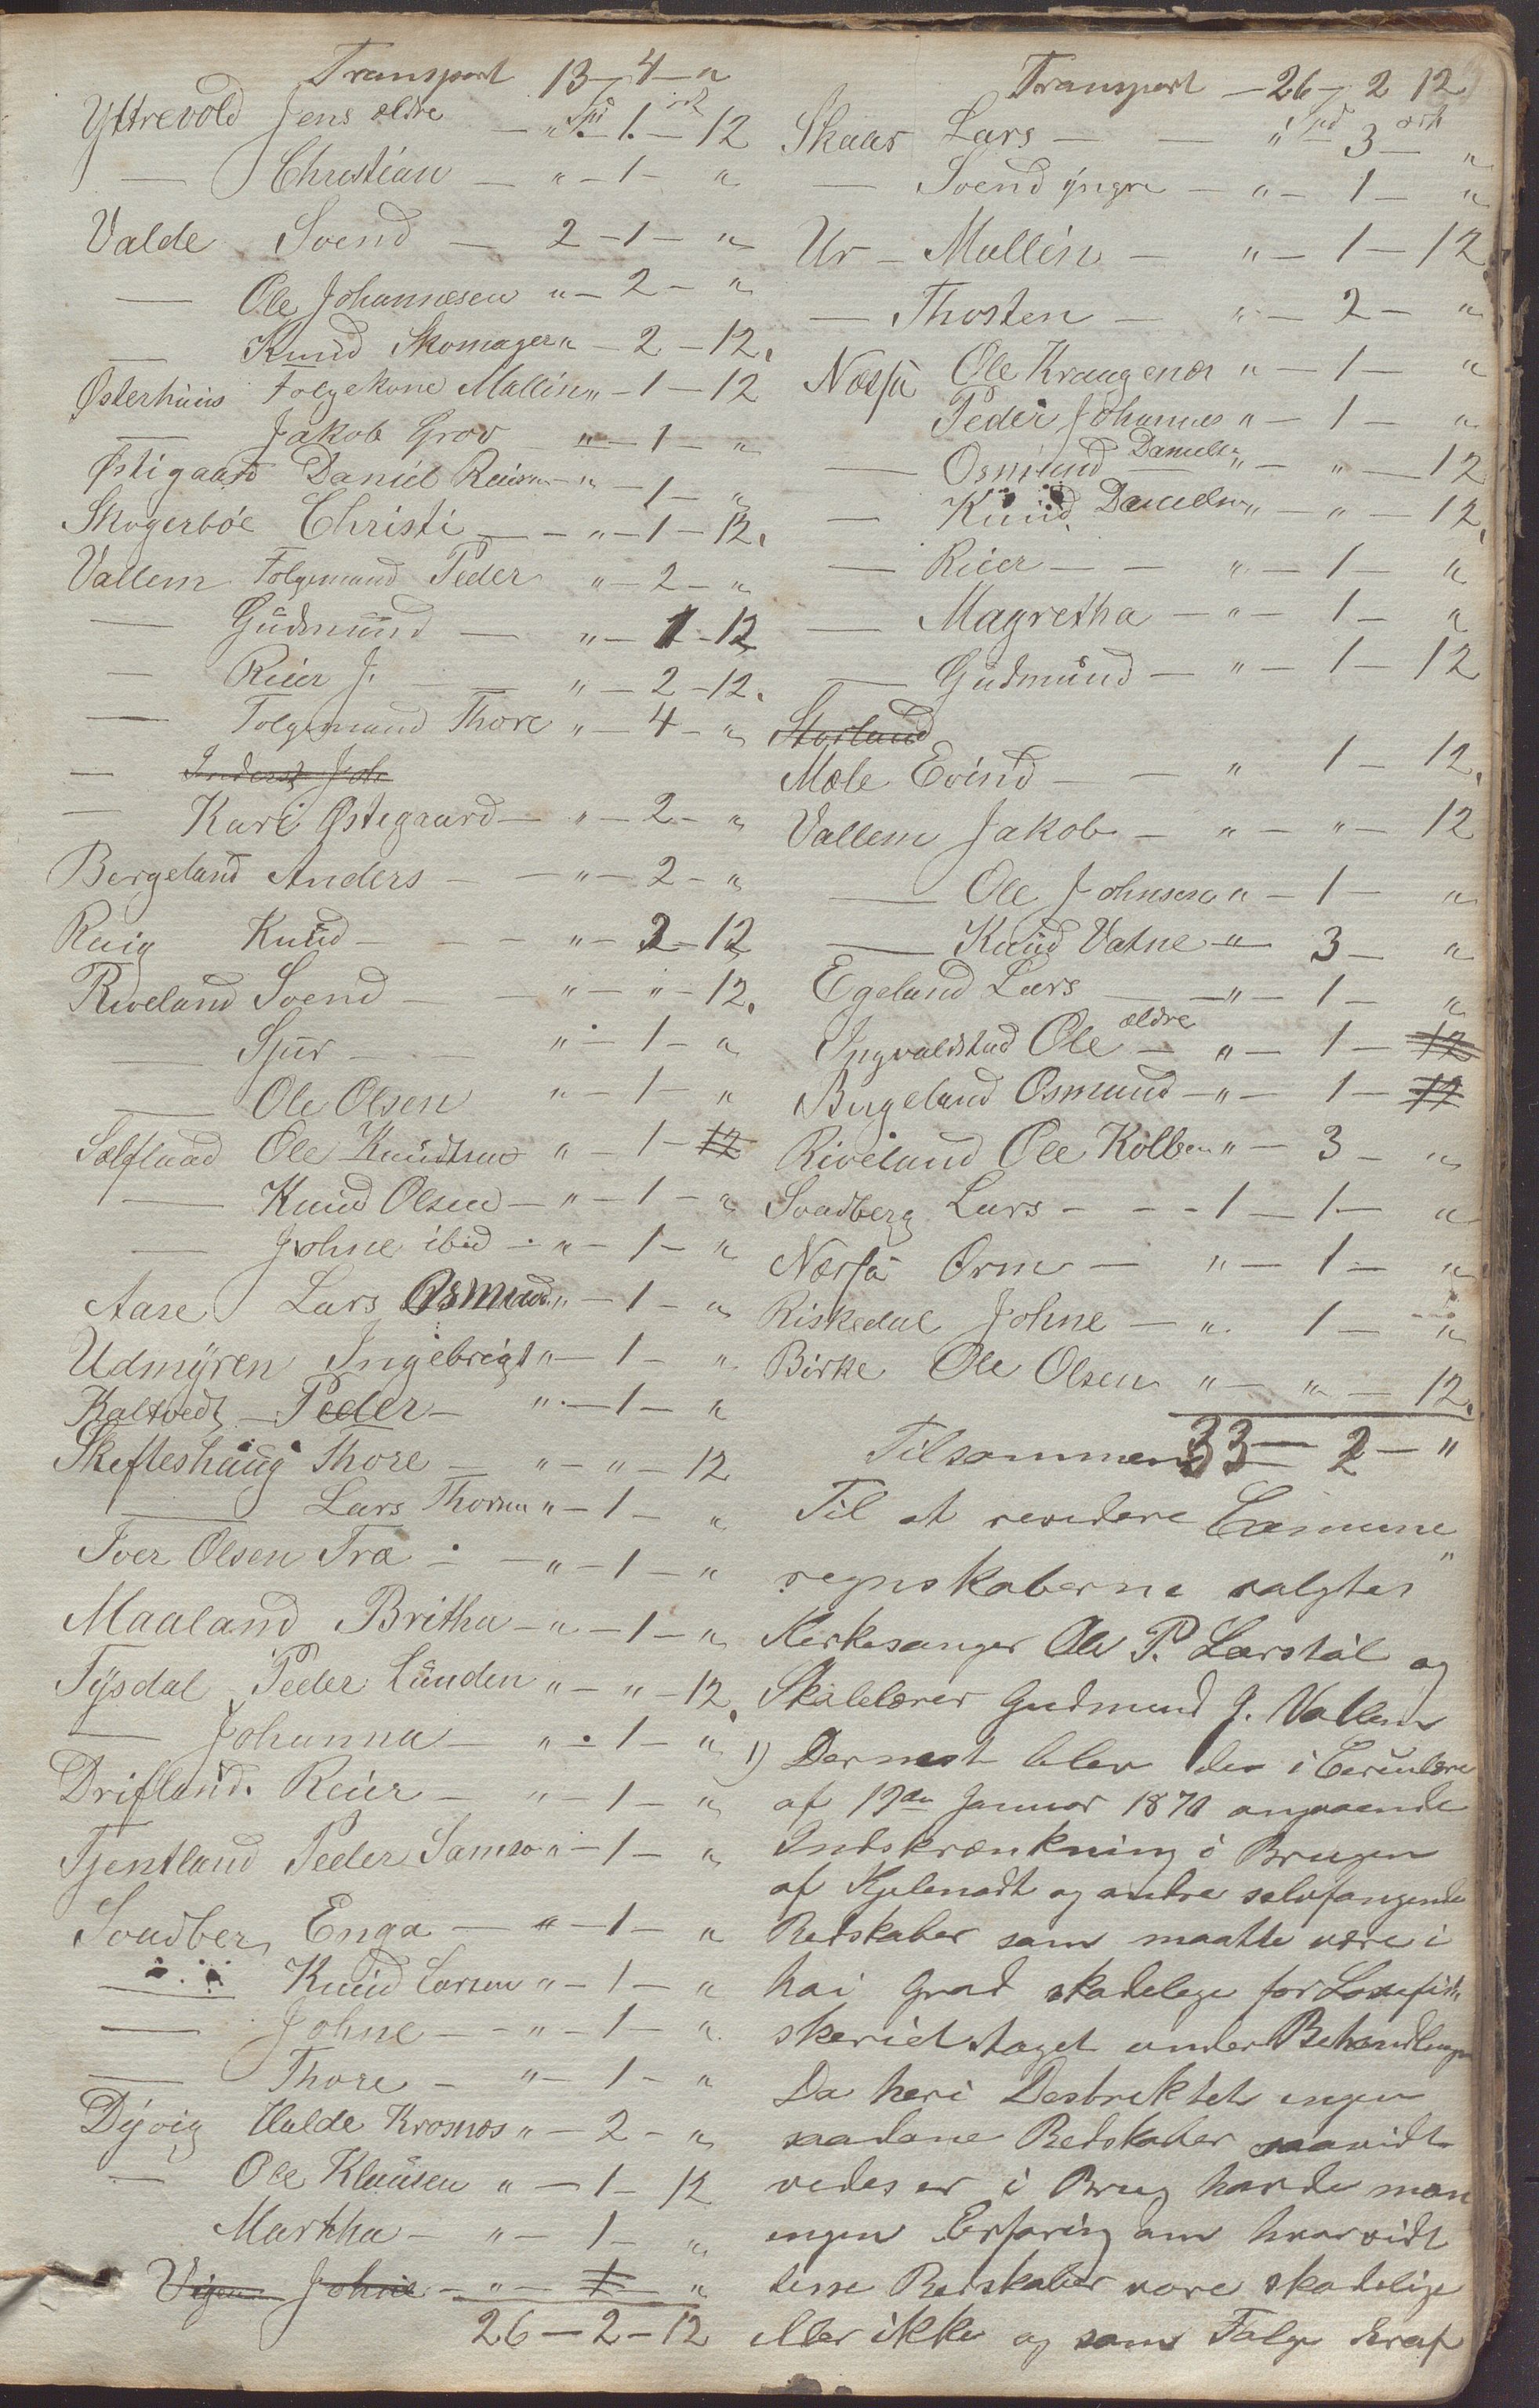 Transport 13 - 4 - "
Yttrevold Jens ældre - " Spd - 1 - 12
— Christian - " - 1 - "
Valde Svend - 2 - 1 - "
— Ole Johannesen " - 2 - "
— Knud Skomager " - 2 - 12.
Østerhuus Folgekone Mallin " - 1 - 12
— Jakob Grov " - 1 - "
Østigaard Daniel Reiersen - " - 1 - "
Skogerböe Christi - " - 1 - 12.
Vallem Folgemand Peder " - 2 - "
— Gudmund - " - 1 - 12
— Reier J. - " - 2 - 12.
— Folgemand Thore " - 4 - "
— Inderst Joh
— Kari Østegaard - " - 2 - "
Bergeland Anders - " - 2 - "
Knud - " - 2 - 12
Riveland Svend - " - " - 12.
— Sjur - " - 1 - "
— Ole Olsen " - 1 - "
Ole Knudsen " - 1 - 12
— Knud Olsen - " - 1 - "
— Johne ibid - " - 1 - "
Aase Lars Osmund. " - 1 - "
Udmyren Ingebrigt " - 1 - "
Kaltvedt - Peder - " - 1 - "
Skefteshaug Thore - " - " - 12
— Lars Thorsen " - 1 - "
Iver Olsen Træ - " - 1 - "
Maaland Britha - " - 1 - "
Tysdal Peder Lunden " - " - 12.
— Johanna - " - 1 - "
Drifland. Reier - " - 1 - "
Tjentland Peder Samso " - 1 - "
Svadberg Enga - " - 1 - "
— Knud Larsen " - 1 - "
— Johne - " - 1 - "
— Thore - " - 1 - "
Dyvig Halde Krosnæs " - 2 - "
— Ole Klausen " - 1 - 12
Martha - " - 1 - "
Vigen Johne - " - 1 - "
26 - 2 - 12
Transport - 26 - 2 12
Skaar Lars - - " Spd - 3 - "
— Svend yngre - " - 1 - "
Ur - Mallin - " - 1 - 12
— Thosten - " - 2 - "
Næsså Ole Kraugenæs " - 1 - "
Peder Johannes " - 1 - "
— Osmund Danielsen " - " - 12
— Knud Danielsen " - " - 12.
— Reier - - " - 1 - "
— Magretha - " - 1 - "
— Gudmund - " - 1 - 12
Storland
Mæle Evind - - " 1 - 12.
Vallem Jakob - " - " - 12
— Ole Johnsen " - 1 - "
— Knud Vatne - " 3 - "
Egeland Lars - " - 1 - "
Ingvaldstad Ole ældre - " - 1 - 12
Bergeland Osmund - " - 1 - 12
Riveland Ole Kolbe " - 3 - "
Svadberg Lars - - - 1 - 1 - "
Næsså Orm - " - 1 - "
Riskedal Johne - " 1 - "
Birke Ole Olsen " - " - 12.
Tilsammen 33 - 2 - "
Til at revidere Comune"
regnskaberne valgtes
Kirkesanger Ole P. Lærstøl og
Skolelærer Gudmund G. Vallem
1) Dernæst blev der i Cerculære
af 19de Januar 1870 angaaende
Indskrænkning i Brugen
af Kjelenodt og andre selvfangende
Redskaber som maatte være i
høi Grad skadelige for Laxefi
skeriet, taget under Behandlingen
Da heri Destriktet ingen
saadane Redskaber saavidt
vedes er i Brug havde man
ingen Erfaring om hvorvidt
disse Redskaber vare skadelige
eller ikke og som Følge deraf